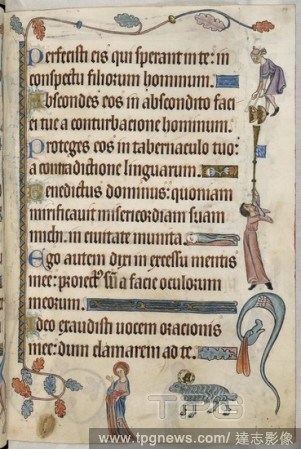 Perfecisti eis qui sperant in te: in
conspectu filiorum hominum.
Abscondes eos in abscondito faci
ei tue a conturbacione hominum.
Proteges eos in tabernaculo tuo:
a contradictione linguarum.
Benedictus dominus: quoniam
mirificauit misericordiam suam
michi in ciuitate munita.
Ego autem dixi in excessu mentis
mee: proiectus sum a facie oculorum
meorum.
Ideo exaudisti uocem orationis
mee: dum clamarem ad te.
TPG
www.tpgnews.com/ 達志影像